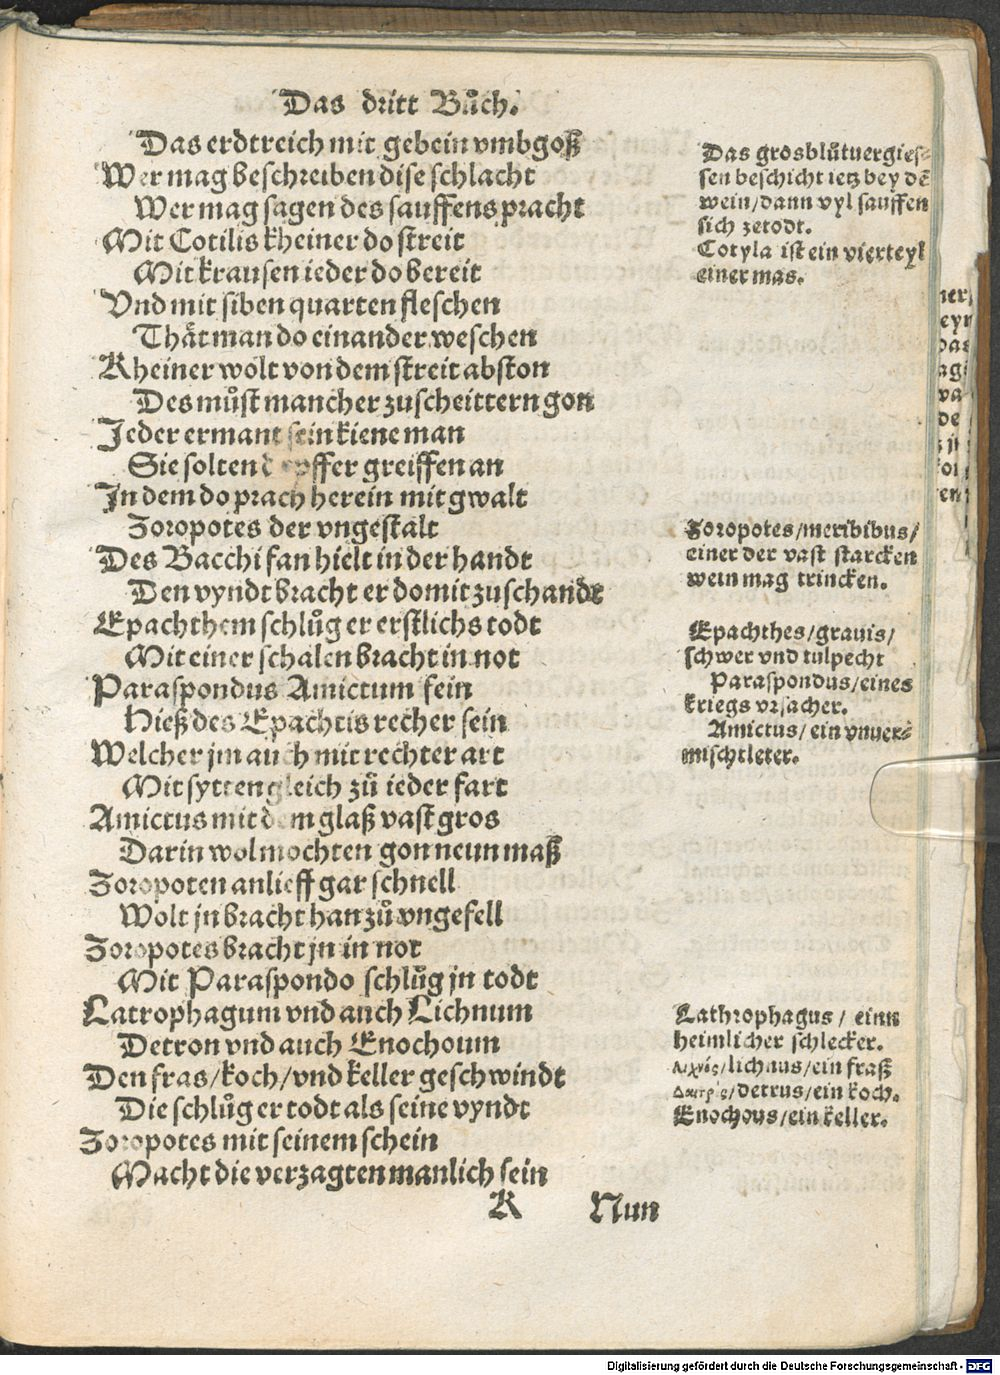 Das dritt Bůch.
Das erdtreich mit gebein vmbgoß
Wer mag beschreiben dise schlacht
Wer mag sagen des sauffens pracht
Mit Cotilis kheiner do streit
Mit krausen ieder do bereit
Vnd mit siben quarten fleschen
Thåt man do einander weschen
Kheiner wolt von dem streit abston
Des můst mancher zuscheittern gon
Jeder ermant sein kiene man
Sie solten griffen an
Jn dem do prach herein mit gwalt
Zoropotes der vngestalt
Des Bacchi fan hielt in der handt
Den vyndt bracht er domit zuschande
Epachthem schlůg er erstlichs todt
Mit einer schalen bracht in not
Paraspondus Amictum fein
Hieß des Epachtis recher sein
Welcher jm auch mit rechter art
Mit sytten gleich zů ieder fart
Amictus mit dem glaß vast gros
Darin wol mochten gon neun maß
Zoropoten anlieff gar schnell
Wolt jn bracht han zů vngefell
Zoropotes bracht jn in not
Mit Paraspondo schlůg jn todt
Latrophagum vnd auch Lichnum
Detron vnd auch Enochoum
Den fras/koch/vnd keller geschwindt
Die schlůg er todt als seine vyndt
Zoropotes mit seinem schein
Macht die verzagten manlich sein
K Nun
Das grosblůtuergies-
sen beschicht ietz bey dē
wein/dann vyl sauffen
sich zetodt.
Cotyla ist ein vierteyl
einer mas.
Zoropotes/meribibus/
einer der vast starcken
wein mag trincken.
Epachthes/grauis/
schwer vnd tulpecht
Paraspondus/eines
kriegs vrsacher.
Amictus/ein vnuer-
mischtleter.
Lathrophagus/ einn
heimlicher schlecker.
/lichnus/ein fraß
/detrus/ein koch.
Enochous/ein keller.
Digitalisierung gefördert durch die Deutsche Forschungsgemeinschaft - DFG